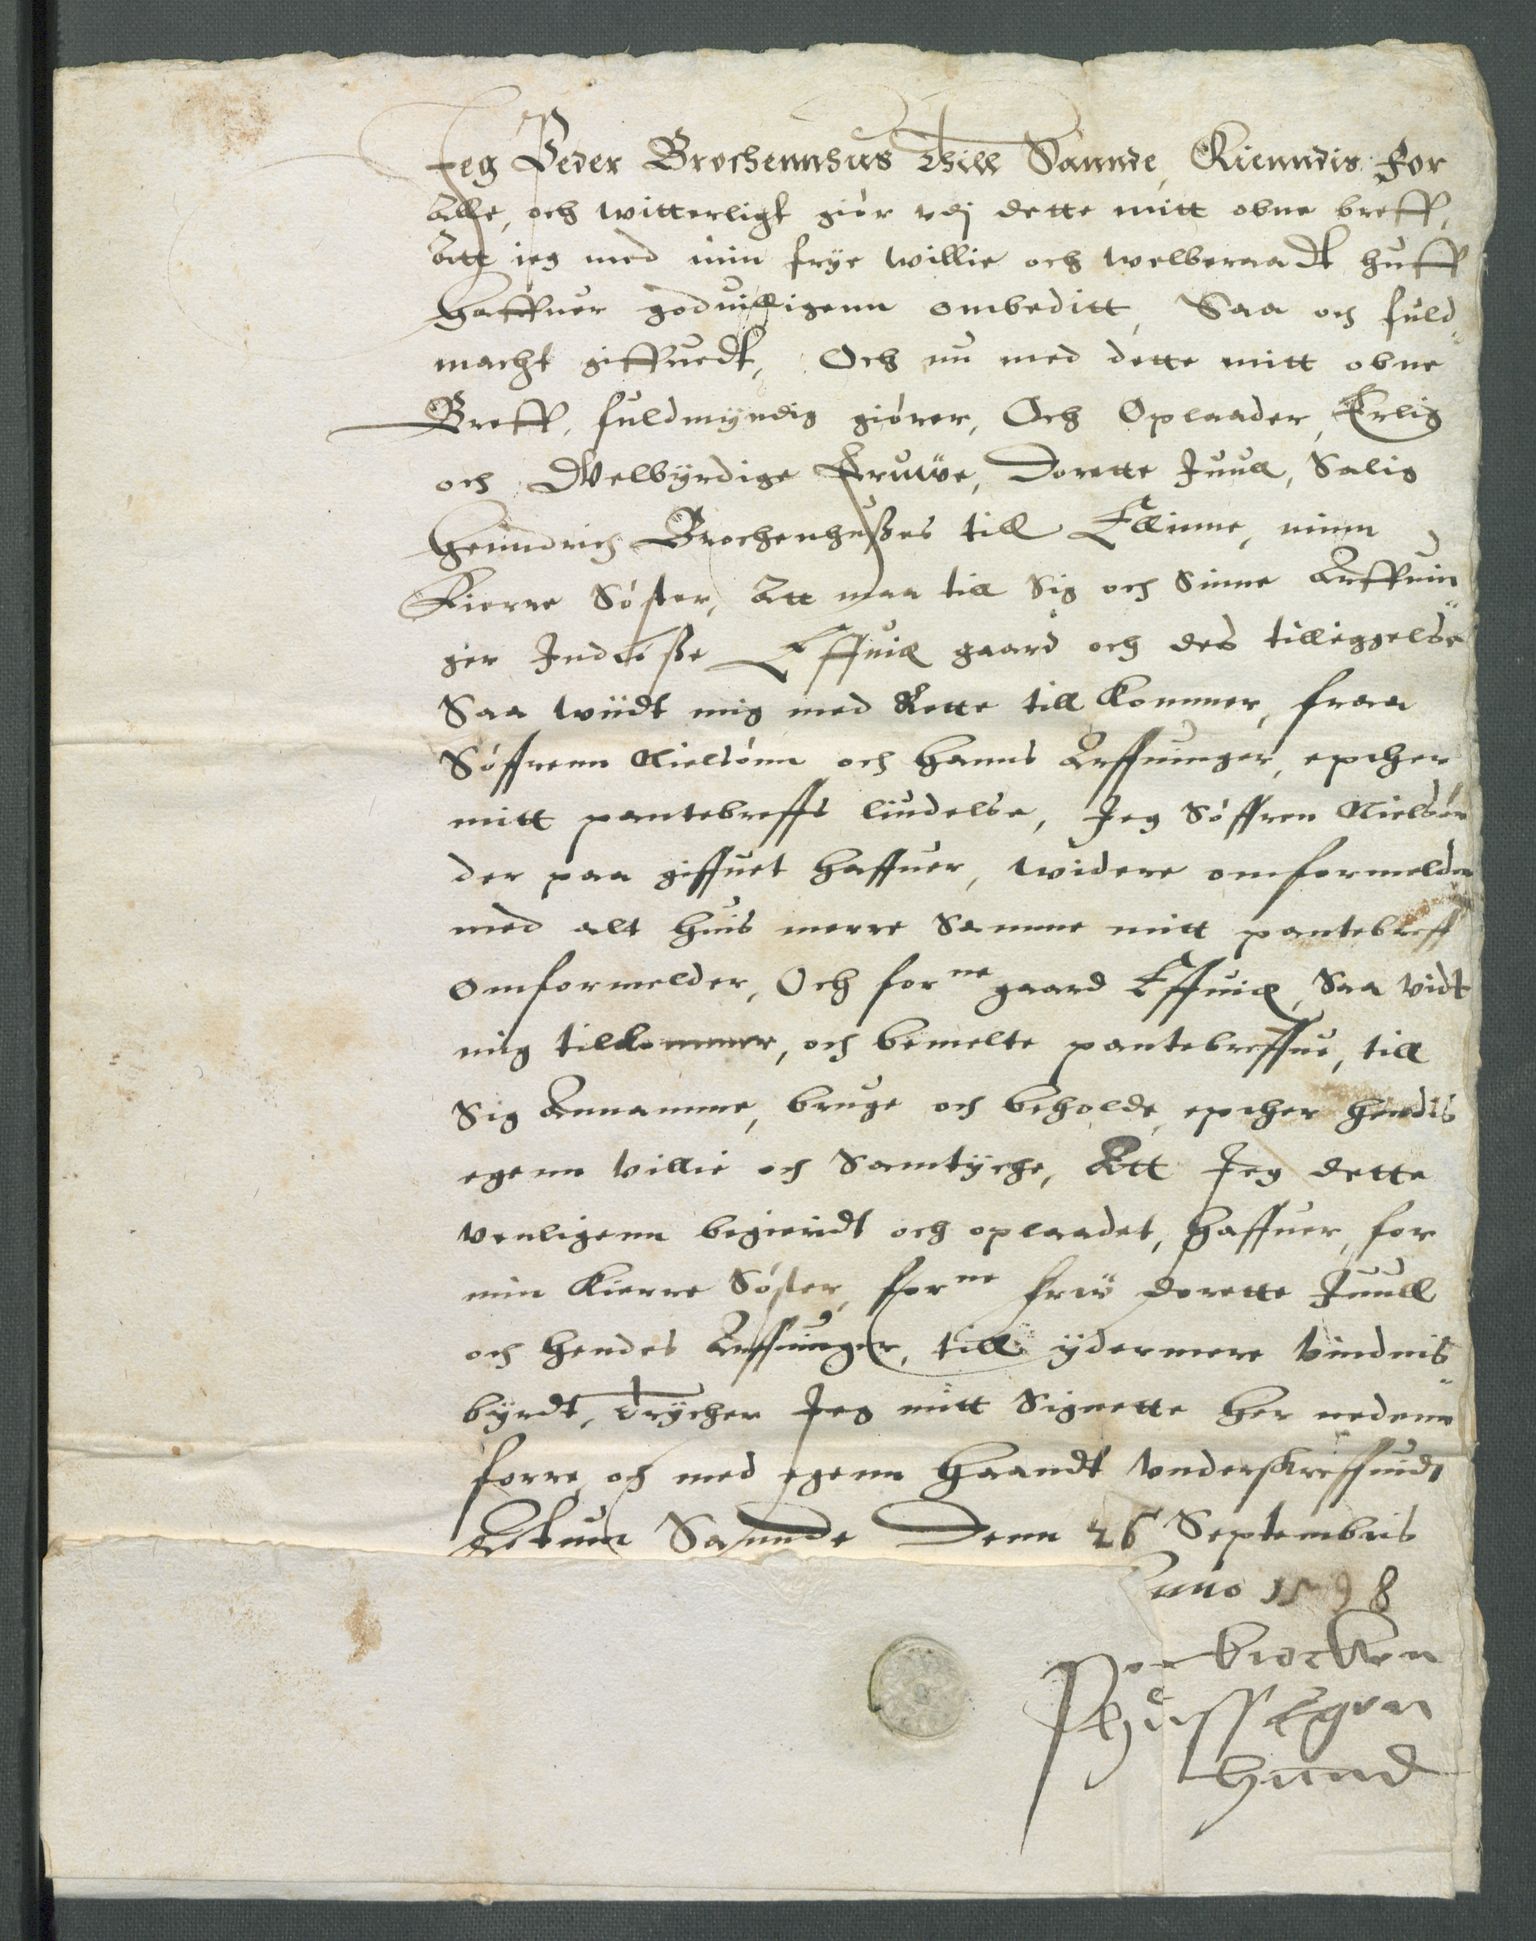 Jeg Peder Brochennhus thill Sannde, Kienndis for
Alle, och witterligt giör vdj dette mitt obne breff,
Att ieg med min frÿe willie och welberaadt huff
Haffuer goduilligenn ombeditt, Saa och fuld„
macht giffuedt, Och nu med dette mitt obne
Breff, fuldmÿndig giörer, Och Oplaader, Erlig
och Welbÿrdige Fruwe, Dorette Juull, Salig
Heinndrich Brochenhußes till Ellinne, minn
Kierre Söster, Att maa till Sig och Sinne Arffuin„
ger Indlöße Effuig gaard och des tilliggelse
Saa wiidt mig med Rette till kommer, fraa
Söffrenn Nielsönn och hanns Arffuinger, epther
mitt pantebreffs liudelse, Jeg Söffren Nielsön
der paa giffuet haffuer, widere omformelder
med alt huis merre Samme mitt pantebreff
omformelder, Och forne gaard Effuig, Saa vidt
mig tilkommer, och bemelte pantebreffue, till
Sig Annamme, bruge och beholde, epther hendis
egenn villie och Samtÿche, Att Jeg dette
venligenn begieridt och oplaadet, haffuer, for
min kierre Söster, forne frw dorette Juull
och hendes Arffuinger, till ÿdermere vindnis„
bÿrdt, trÿcher Jeg mitt Signette her nedenn
forre och med egenn Haandt vnderskreffuidt
Actum Sannde Denn 26 Septembris
Anno 1598
Per brocken
hüss Egen
Hand